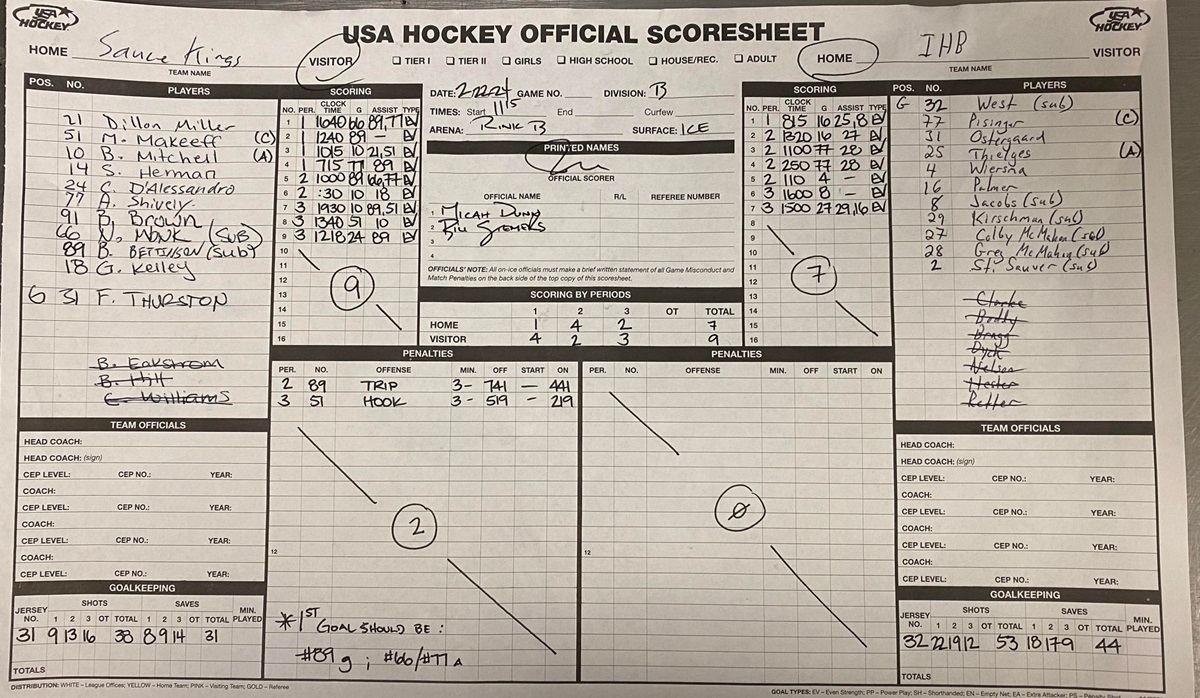 USA HOCKEY
USA HOCKEY OFFICIAL SCORESHEET
USA HOCKEY
HOME Sauce Kings VISITOR
TEAM NAME
☐ TIER I ☐ TIER II ☐ GIRLS ☐ HIGH SCHOOL ☐ HOUSE/REC. ☐ ADULT
HOME IHB VISITOR
TEAM NAME
POS. NO. PLAYERS
21 Dillon Miller
51 M. Makeeff (C)
10 B. Mitchell (A)
14 S. Herman
24 C. D'Alessandro
77 A. Shively
91 B. Brown
66 N. Monk (SUB)
89 B. BETTINSON (Sub)
18 G. Kelley
G 31 F. THURSTON
B. Eakstrom
B. Hitt
C. Williams
SCORING
NO. PER. CLOCK TIME G ASSIST TYPE
1 1 1640 66 89,77 EV
2 1 1240 89 EV
3 1 1015 10 21,51 EV
4 1 715 77 89 EV
5 2 1000 89 66,77 EV
6 2 :30 10 18 EV
7 3 1930 10 89,51 EV
8 3 1340 51 10 EV
9 3 1218 24 89 EV
10
11
12
13
14
15
16
9
DATE: 2-22-24 GAME NO. DIVISION: B
TIMES: Start 1115 End Curfew
ARENA: RINK B SURFACE: ICE
PRINTED NAMES
OFFICIAL SCORER
OFFICIAL NAME R/L REFEREE NUMBER
1 MICAH DUNN
2 BILL SIEMERS
3
4
OFFICIALS' NOTE: All on-ice officials must make a brief written statement of all Game Misconduct and
Match Penalties on the back side of the top copy of this scoresheet.
SCORING BY PERIODS
1 2 3 OT TOTAL
HOME 1 4 2 7
VISITOR 4 2 3 9
SCORING
NO. PER. CLOCK TIME G ASSIST TYPE
1 1 815 16 25,8 EV
2 2 1320 16 27 EV
3 2 1100 77 28 EV
4 2 250 77 28 EV
5 2 110 4 - EV
6 3 1600 8 - EV
7 3 1500 27 29,16 EV
8
9
10
11
12
13
14
15
16
7
POS. NO. PLAYERS
G 32 West (sub)
77 Pisinger (C)
31 Ostergaard
25 Thielges (A)
4 Wiersma
16 Palmer
8 Jacobs (sub)
29 Kirschman (sub)
27 Colby McMahon (sub)
28 Greg McMahon (sub)
2 St. Sauver (sub)
Clarke
Boddy
Bragg
Dyck
Nelson
Hester
Retter
PENALTIES
PER. NO. OFFENSE MIN. OFF START ON
2 89 TRIP 3- 741 - 441
3 51 HOOK 3- 519 - 219
12
2
*1ST GOAL SHOULD BE:
#89 g ; #66/#77 A
PENALTIES
PER. NO. OFFENSE MIN. OFF START ON
12
Ø
TEAM OFFICIALS
HEAD COACH:
HEAD COACH: (sign)
CEP LEVEL: CEP NO.: YEAR:
COACH:
CEP LEVEL: CEP NO.: YEAR:
COACH:
CEP LEVEL: CEP NO.: YEAR:
COACH:
CEP LEVEL: CEP NO.: YEAR:
GOALKEEPING
JERSEY NO. SHOTS 1 2 3 OT TOTAL SAVES 1 2 3 OT TOTAL MIN. PLAYED
31 9 13 16 38 8 9 14 31
TOTALS
TEAM OFFICIALS
HEAD COACH:
HEAD COACH: (sign)
CEP LEVEL: CEP NO.: YEAR:
COACH:
CEP LEVEL: CEP NO.: YEAR:
COACH:
CEP LEVEL: CEP NO.: YEAR:
COACH:
CEP LEVEL: CEP NO.: YEAR:
GOALKEEPING
JERSEY NO. SHOTS 1 2 3 OT TOTAL SAVES 1 2 3 OT TOTAL MIN. PLAYED
32 22 19 12 53 18 17 9 44
TOTALS
DISTRIBUTION: WHITE – League Offices; YELLOW – Home Team; PINK – Visiting Team; GOLD – Referee
GOAL TYPES: EV – Even Strength; PP – Power Play; SH – Shorthanded; EN – Empty Net; EA – Extra Attacker; PS – Penalty Shot